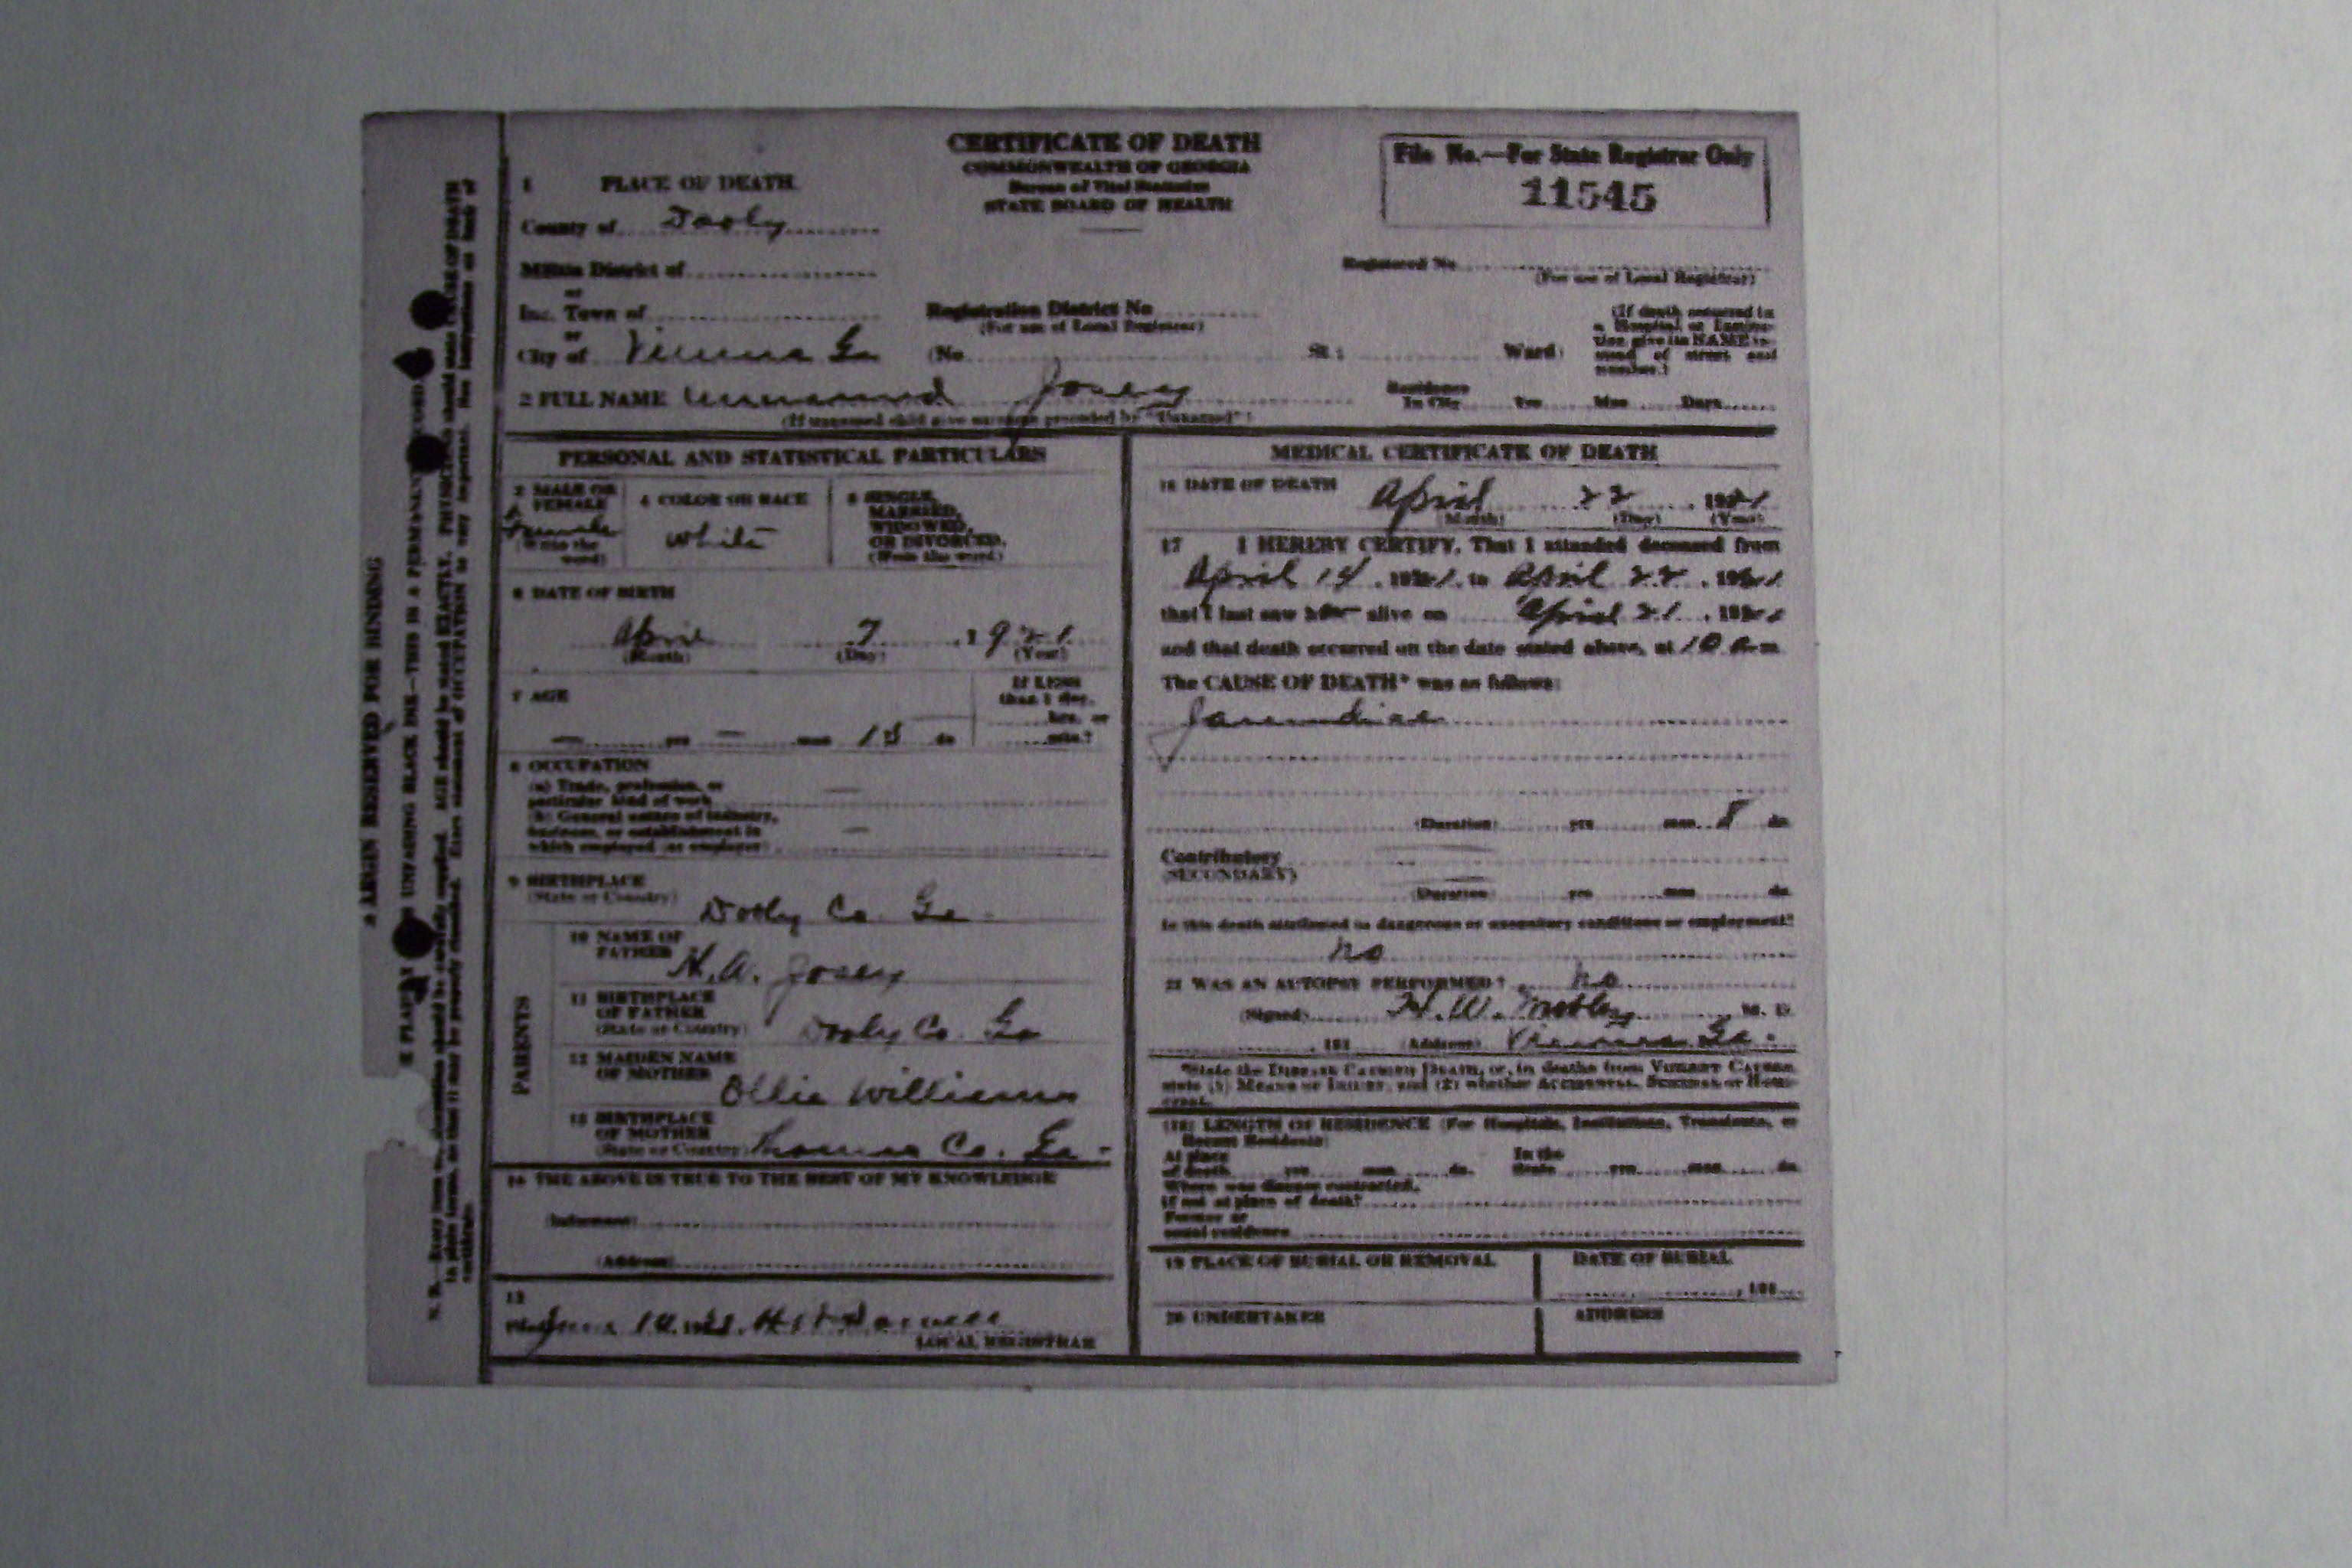 CERTIFICATE OF DEATH
COMMONWEALTH OF GEORGIA
Bureau of Vital Statistics
STATE BOARD OF HEALTH
File No.—For State Registrar Only
11545
1 PLACE OF DEATH
County of Dooly
Militia District of
or
Inc. Town of
or
City of Vienna Ga
Registration District No
(For use of Local Registrar)
Registered No
(For use of Local Registrar)
(No. St.; Ward)
(If death occurred in
a Hospital or Institu-
tion give its NAME in-
stead of street and
number.)
2 FULL NAME Unnamed Josey
(If unnamed child give surname preceded by "Unnamed")
Residence
In City Yrs Mos Days
PERSONAL AND STATISTICAL PARTICULARS
3 MALE OR
FEMALE
Female
(Write the
word)
4 COLOR OR RACE
White
5 SINGLE,
MARRIED,
WIDOWED,
OR DIVORCED.
(Write the word)
6 DATE OF BIRTH
April 7, 1921
(Month) (Day) (Year)
7 AGE
— yrs — mos 15 ds
If LESS
than 1 day,
hrs. or
min.?
8 OCCUPATION
(a) Trade, profession, or
particular kind of work —
(b) General nature of industry,
business, or establishment in
which employed (or employer) —
9 BIRTHPLACE
(State or Country) Dooly Co. Ga.
PARENTS
10 NAME OF
FATHER H.A. Josey
11 BIRTHPLACE
OF FATHER
(State or Country) Dooly Co. Ga
12 MAIDEN NAME
OF MOTHER Ollie Williams
13 BIRTHPLACE
OF MOTHER
(State or Country) Thomas Co. Ga -
14 THE ABOVE IS TRUE TO THE BEST OF MY KNOWLEDGE
(Informant)
(Address)
15
LOCAL REGISTRAR
MEDICAL CERTIFICATE OF DEATH
16 DATE OF DEATH April 22, 1921
(Month) (Day) (Year)
17 I HEREBY CERTIFY, That I attended deceased from
April 14, 1921, to April 22, 1921
that I last saw her alive on April 21, 1921
and that death occurred on the date stated above, at 10 A. m
The CAUSE OF DEATH* was as follows:
Jaundice
(Duration) yrs mos 8 ds
Contributory
(SECONDARY)
(Duration) yrs mos ds
Is this death attributed to dangerous or unsanitary conditions or employment?
no
21 WAS AN AUTOPSY PERFORMED? no
(Signed) H.W. Mobley M. D.
, 191 (Address) Vienna Ga.
*State the DISEASE CAUSING DEATH, or, in deaths from VIOLENT CAUSES,
state (1) MEANS OF INJURY, and (2) whether ACCIDENTAL, SUICIDAL or HOMI-
CIDAL.
(18) LENGTH OF RESIDENCE (For Hospitals, Institutions, Transients, or
Recent Residents)
At place
of death yrs mos ds. In the
State yrs mos ds
Where was disease contracted,
if not at place of death?
Former or
usual residence
19 PLACE OF BURIAL OR REMOVAL
DATE OF BURIAL
, 191
20 UNDERTAKER
ADDRESS
MARGIN RESERVED FOR BINDING
UNFADING BLACK INK—THIS IS A PERMANENT RECORD